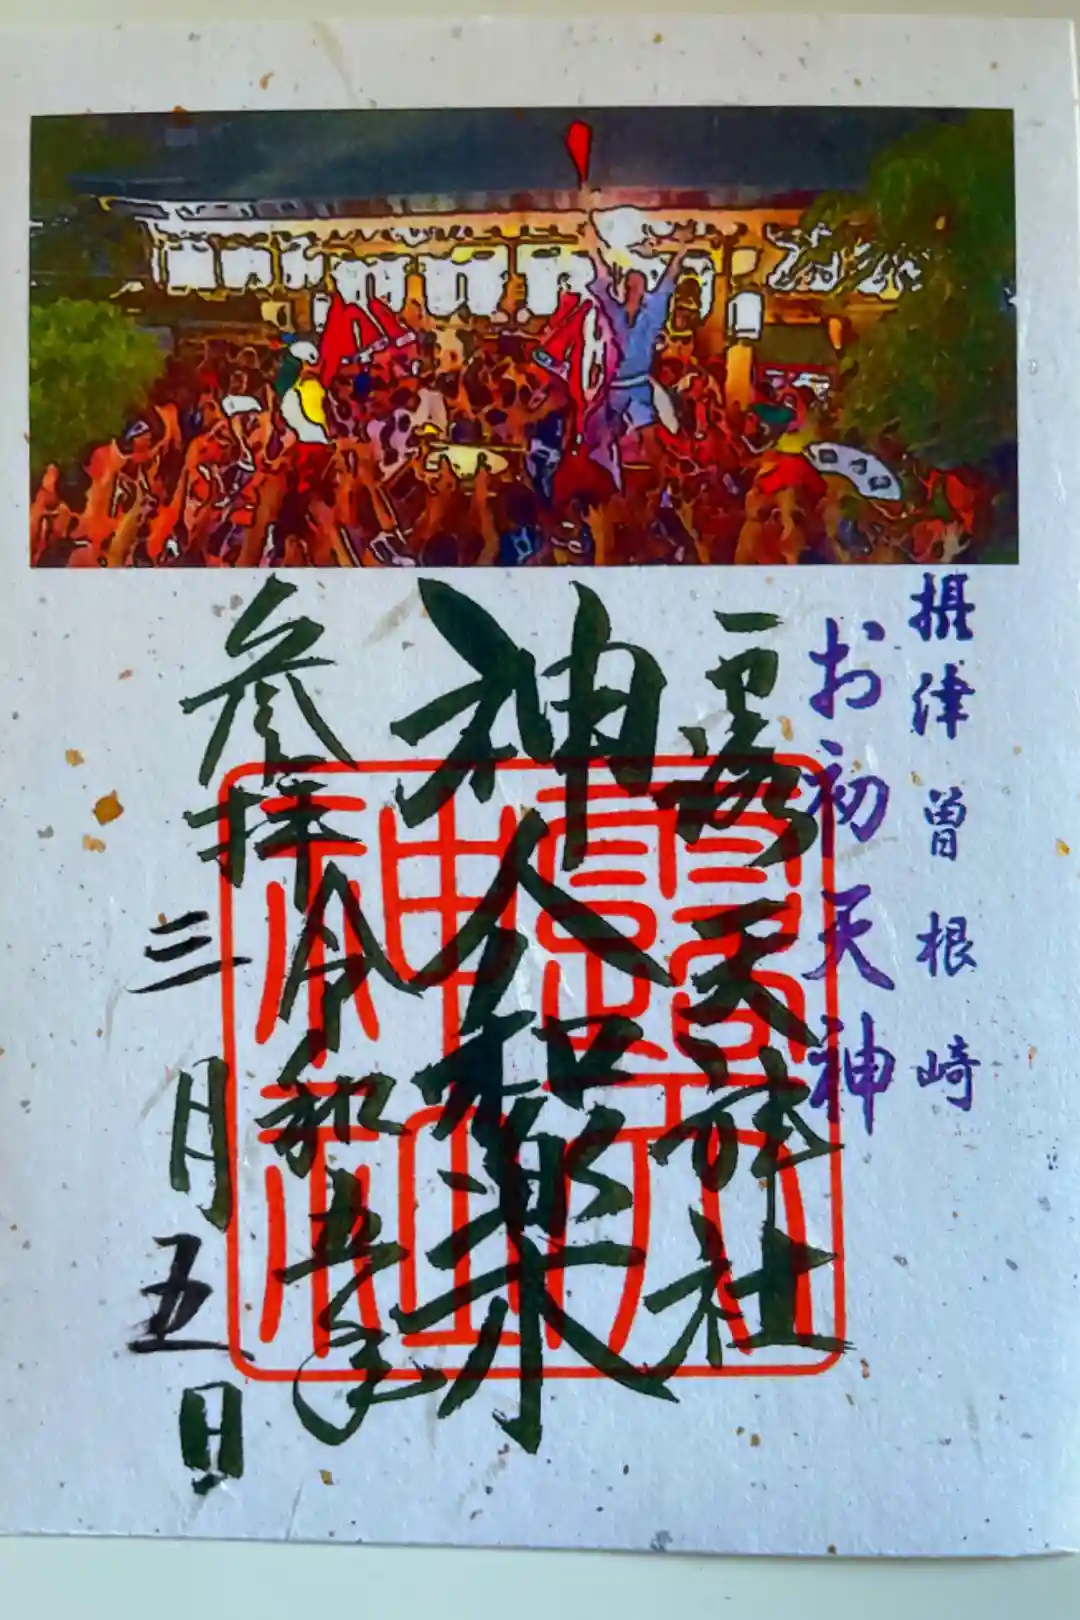 摂津 曽根崎
お初天神
露天神社
神人和楽
参拝令和五年
三月五日